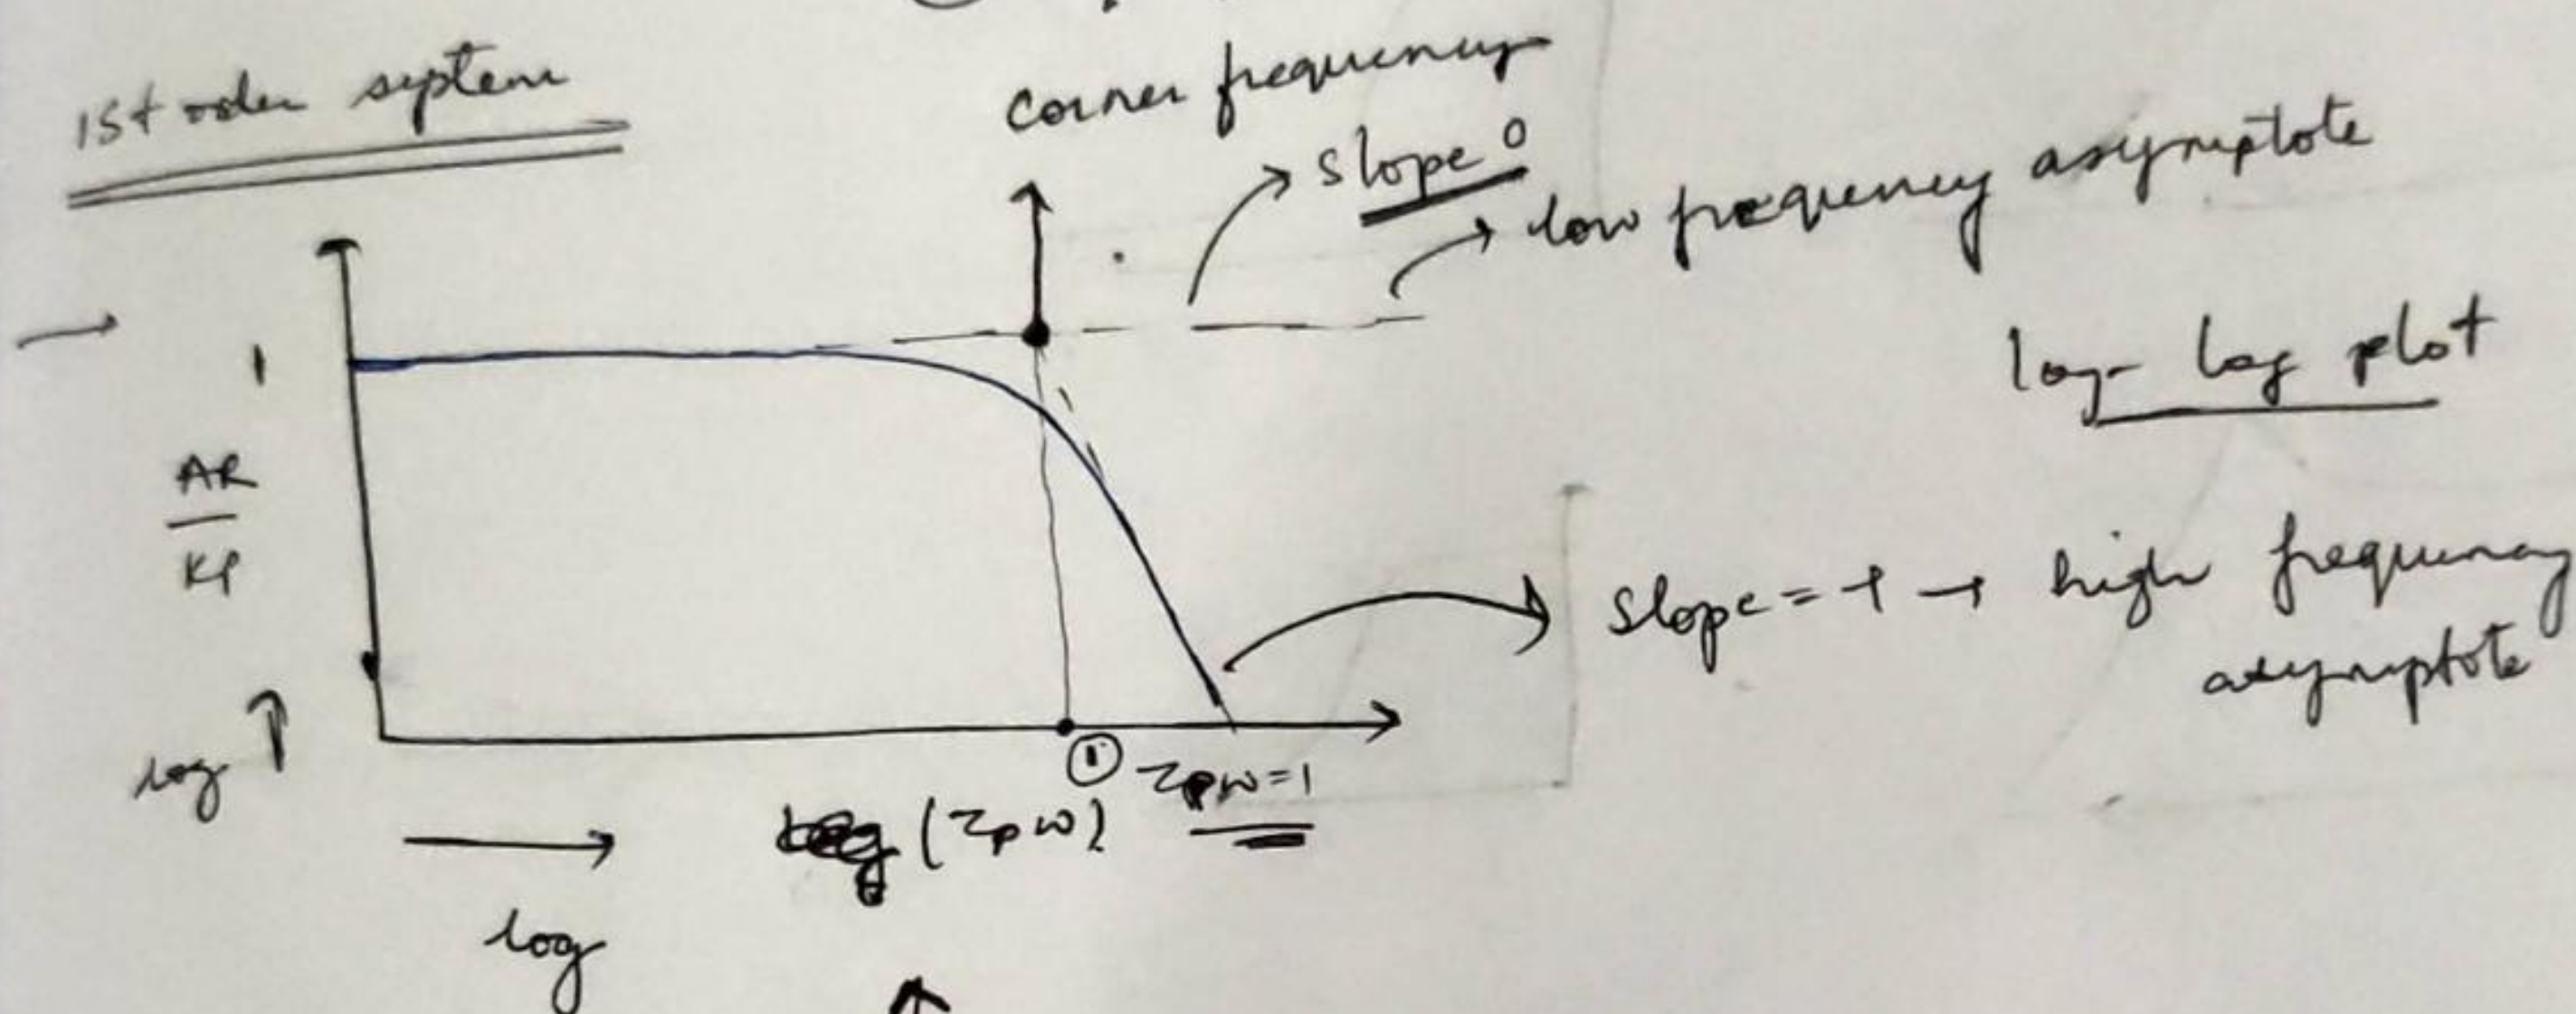 1st oder system
corner frequency
slope 0
low frequency asymptote
log-log plot
1
AR
KP
slope = -1 → high frequency
asymptote
log ↑
① τpω=1
(τpω)
log